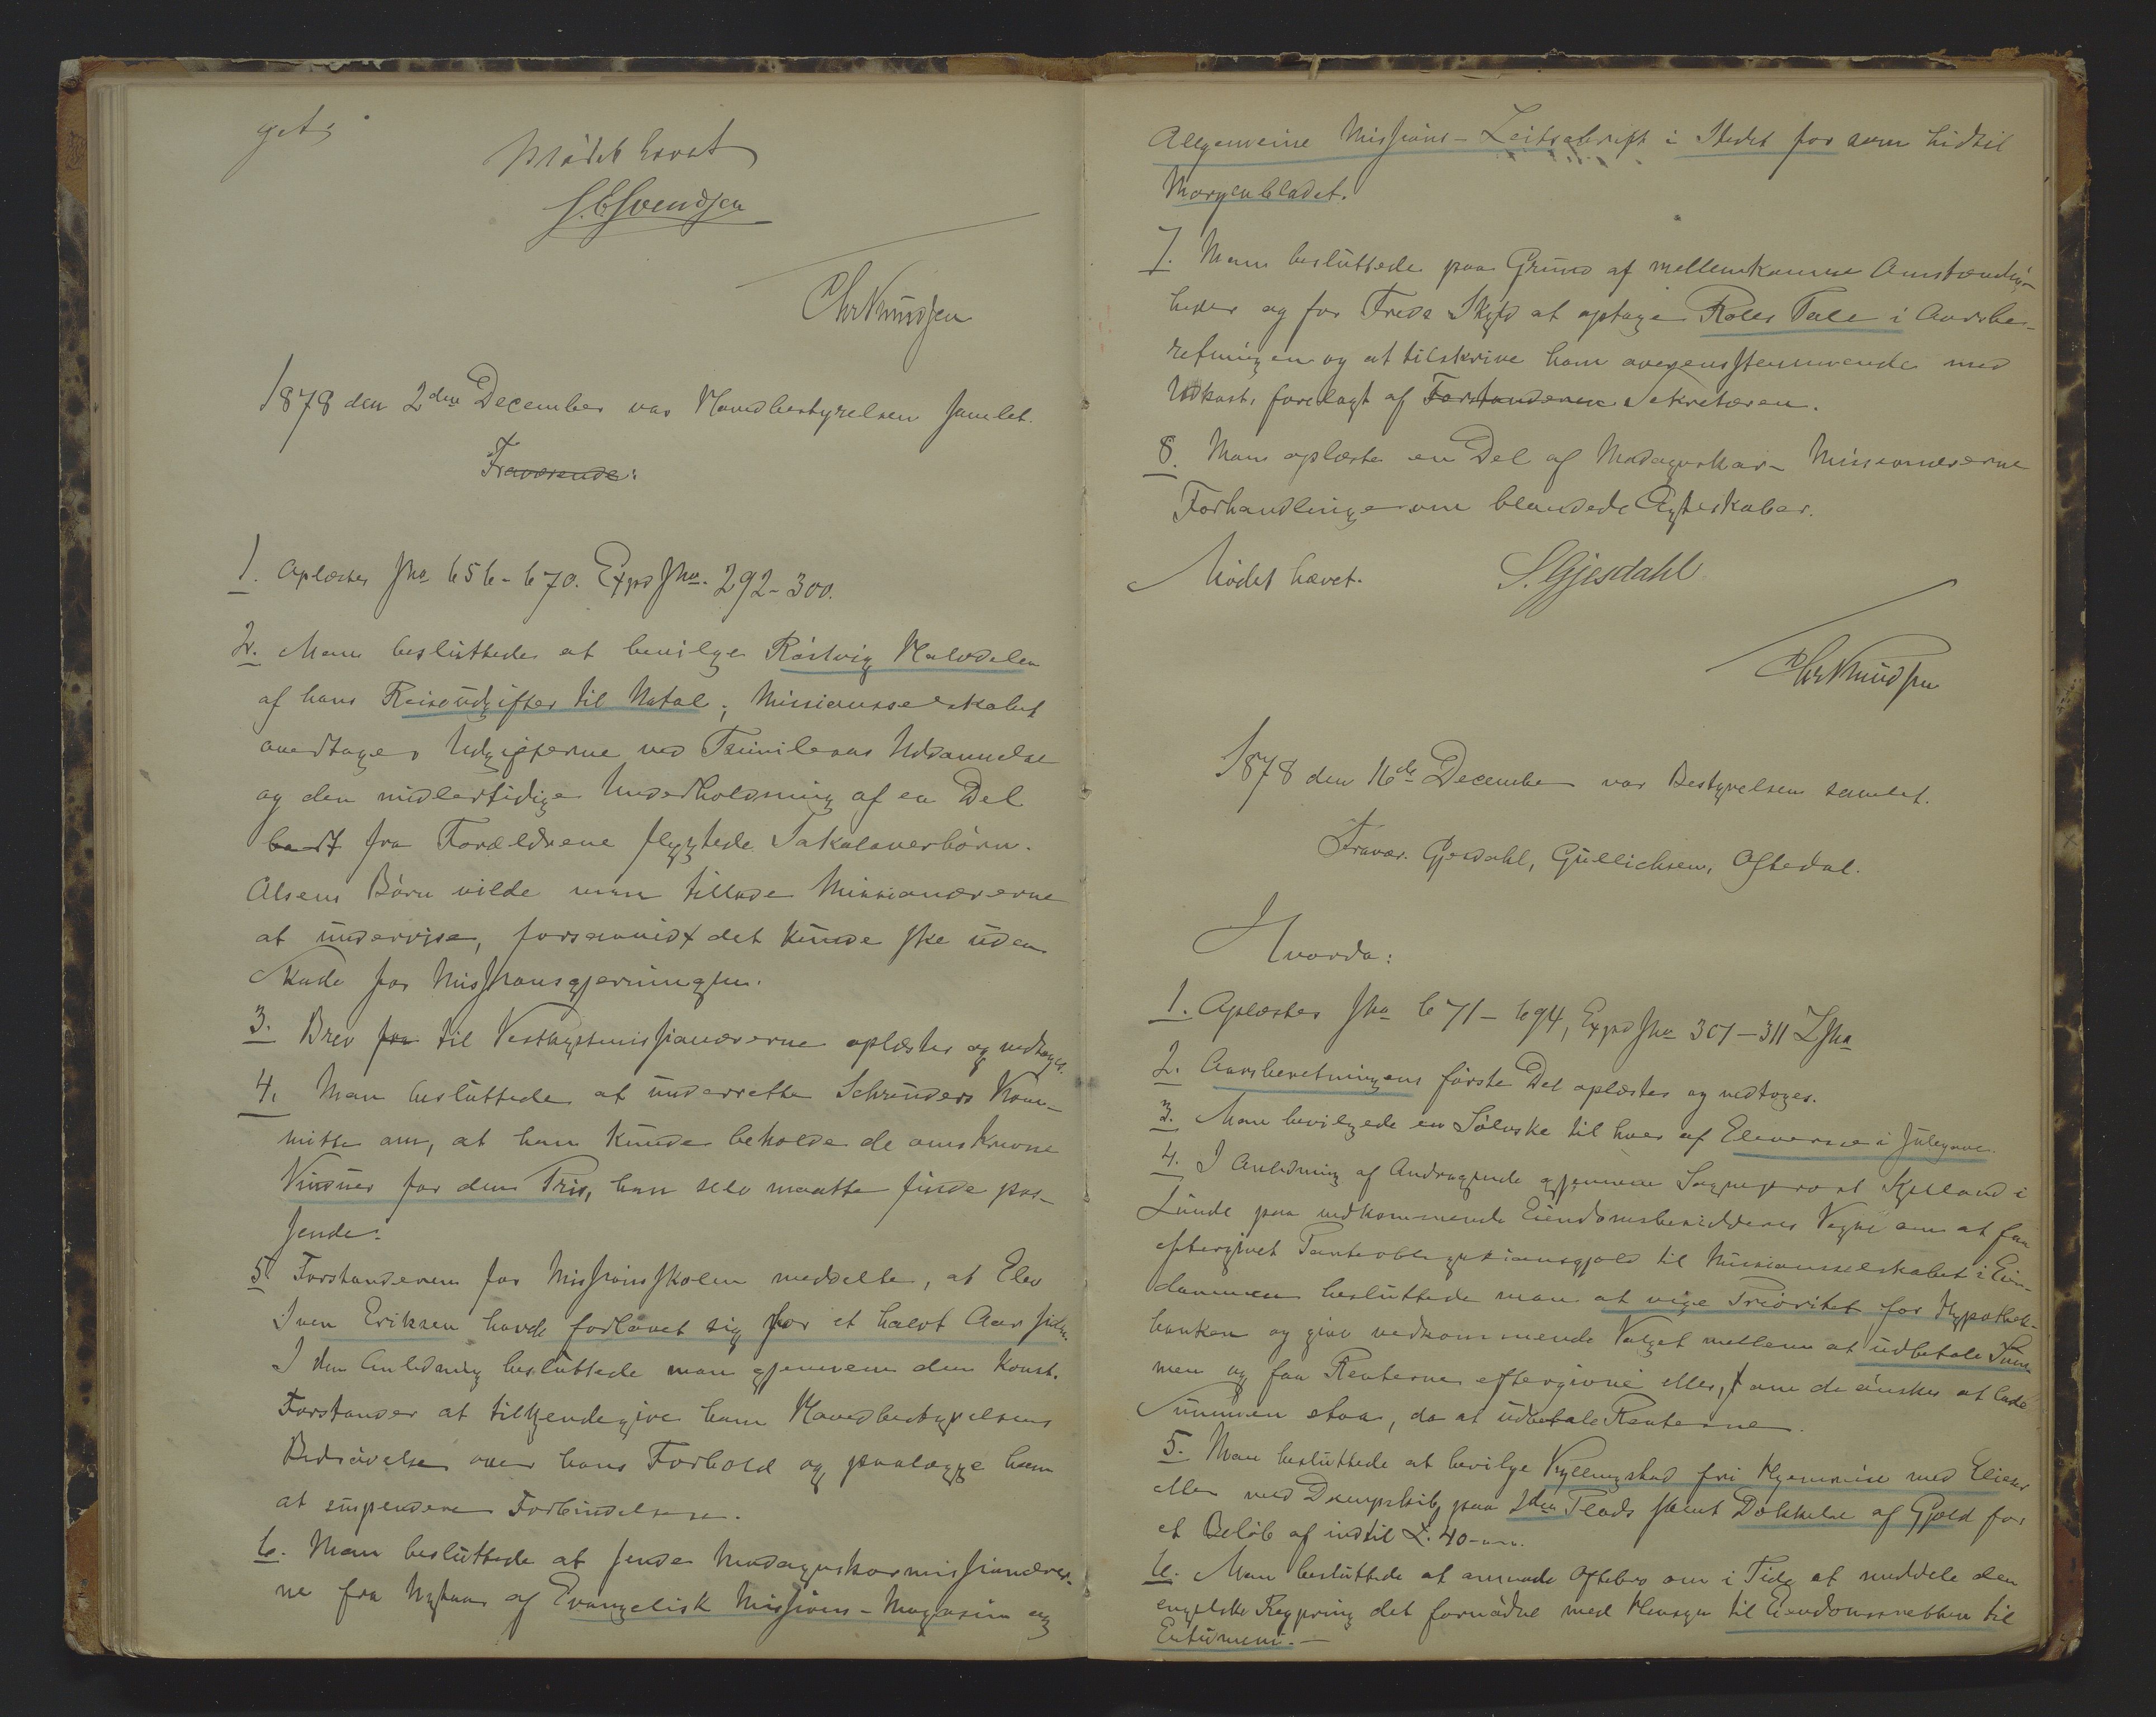 get;
Mødet hævet
S. E. Svendsen
Chr Knudsen
1878 den 2den December var Hovedbestyrelsen samlet.
Fraværende:
1. Oplæstes Jno 656-670. Expd Jno. 292-300.
2. Man besluttede at bevilge Røstvig Halvdelen
af hans Reiseudgifter til Natal; Missionsselskabet
overtager Udgifterne ved Familiens Uddannelse
og den midlertidige Underholdning af en Del
bort fra Forældrene flygtede Sakalaverbørn.
Olsens Børn vilde man tillade Missionærerne
at undervise, forsaavidt det kunde ske uden
Skade for Missionsgjerningen.
3. Brev fra til Vestkystmissionærerne oplæstes og vedtoges.
4. Man besluttede at underrette Schreuders Kom-
mitte om, at han kunde beholde de omskrevne
Vinduer for den Pris, han selv maatte finde pas-
sende.
5. Forstanderen for Missionsskolen meddelte, at Elev
Iver Eriksen havde forlovet sig for et halvt Aar siden.
I den Anledning besluttede man gjennem den konst.
Forstander at tilkjendegive ham Hovedbestyrelsens
Bedrøvelse over hans Forhold og paalægge ham
at suspendere Forbindelsen.
6. Man besluttede at sende Madagaskarmissionærer-
ne fra Nytaar af Evangelisk Missions-Magasin og
Allgemeine Missions-Zeitschrift i Stedet for som hidtil
Morgenbladet.
7. Man besluttede paa Grund af mellemkomne Omstændig-
heder og for Freds Skyld at optage Roles Tale i Aarsbe-
retningen og at tilskrive ham overensstemmende med
Udkast, forelagt af Forstanderen Sekretæren.
8. Man oplæste en Del af Madagaskar-Missionærerne
Forhandlinger om blandede Ægteskaber.
Mødet hævet. S. Gjesdahl.
Chr Knudsen
1878 den 16de December var Bestyrelsen samlet.
Fravær. Gjesdahl, Gullichsen, Oftedal.
Hvorda:
1. Oplæstes Jno 671-694, Expd Jno 301-311 ZJno
2. Aarsberetningens første Del oplæstes og vedtoges.
3. Man bevilgede en Sølvske til hver af Eleverne i Julegave.
4. I Anledning af Andragende gjennem Sogneprest Kjelland i
Lunde paa vedkommende Eiendomsbesidderes Vegne om at faa
eftergivet Panteobligationsgjæld til Missionsselskabet i Eien-
dommen besluttede man at vige Prioritet for Hypothek-
banken og give vedkommende Valget mellem at udbetale Sum-
men og faa Renterne eftergivne eller, om de ønsker at lade
Summen staa, da at udbetale Renterne.
5. Man besluttede at bevilge Kyllingstad fri Hjemreise med Elieser
eller med Dampskib paa 2den Plads samt Dækkelse af Gjæld for
et Beløb af indtil £. 40-
6. Man besluttede at anmode Oftebro om i Tide at meddele den
engelske Regjering det fornødne med Hensyn til Eiendomsretten til
Entumeni.-